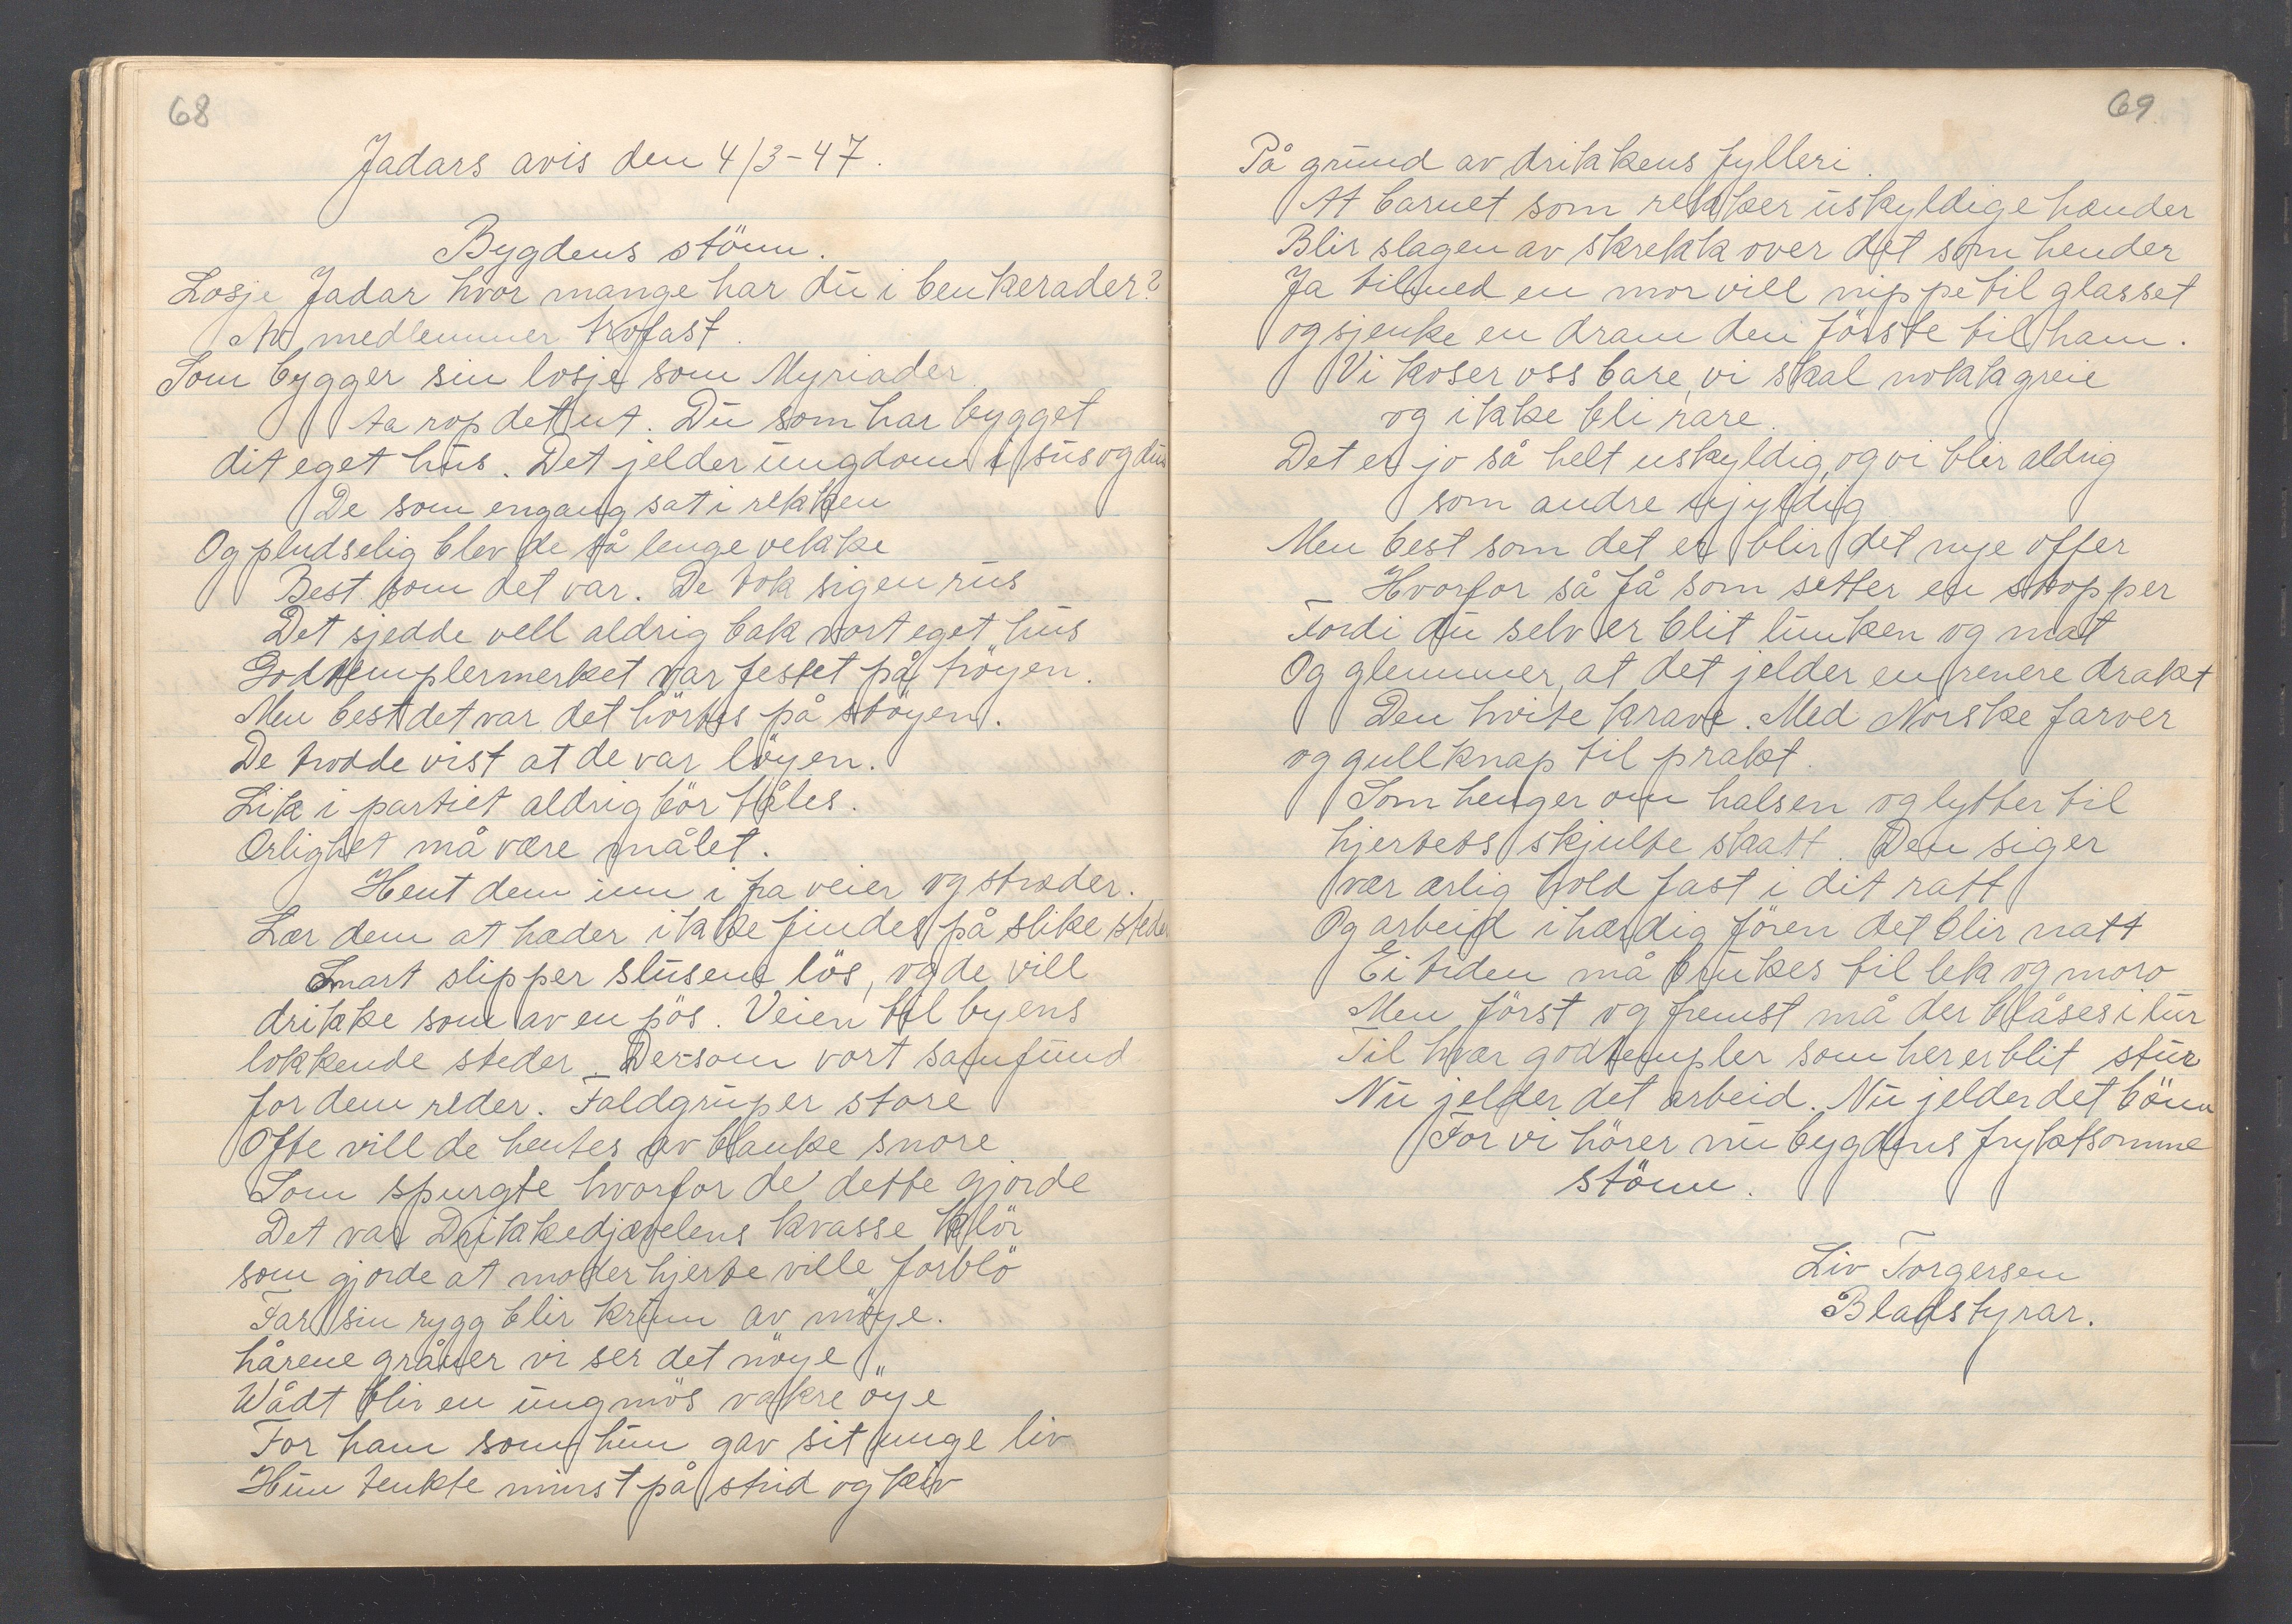 68
Jadars avis den 4/3-47.
Bygdens stönn.
Losje Jadar hvor mange har du i benkerader?
Av medlemmer trofast.
Som bygger sin losje som Myriader.
Ja rop det ut. Du som har bygget
dit eget hus. Det jelder ungdom i sus og dus
De som engang sat i rekken
Og pludselig blev de så lenge vekke
Best som det var. De tok sig en rus
Det sjedde vell aldrig bak vort eget hus
Godtemplermerket var festet på tröyen.
Men best det var det hörtes på stöyen.
De trodde vist at de var löyen.
Lik i partiet aldrig bör tåles.
Ærlighet må være målet.
Hent dem inn i fra veier og stræder.
Lær dem at hæder ikke findes på slike steder
Snart slipper slusene lös, og de vill
drikke som av en pös. Veien til byens
lokkende steder. Dersom vort samfund
for dem reder. Faldgruper store
Ofte vill de hentes av blanke snore
Som spurgte hvorfor de dette gjorde
Det var Drikkedjævelens kvasse klör
som gjorde at moderhjerte ville forblö
Far sin rygg blir krum av möye.
hårene gråner vi ser det nöye
Wådt blir en ungmös vakre öye
For ham som hun gav sit unge liv
Hun tenkte minst på strid og kiv
69
På grund av drikkens fylleri.
At barnet som rekker uskyldige hænder
Blir slagen av skrekk over det som hender
Ja tilmed en mor vill nippe til glasset
og sjenke en dram den förste til ham.
Vi koser oss bare, vi skal nokk greie
og ikke bli rare.
Det er jo så helt uskyldig, og vi blir aldrig
som andre ujyldig
Men best som det er blir det nye offer
Hvorfor så få som setter en stopper
Fordi du selv er blit lunken og mat
Og glemmer, at det jelder en renere drakt
Den hvite krave. Med Norske farver
og gullknap til prakt.
Som henger om halsen og lytter til
hjertets skjulte skatt. Den siger
vær ærlig hold fast i dit ratt
Og arbeid ihærdig fören det blir natt
Ei tiden må brukes til lek og moro
Men först og fremst må der blåses i lur
Til hver godtempler som her er blit stur
Nu jelder det arbeid. Nu jelder det bönn
For vi hörer nu bygdens fryktsomme
stönn.
Liv Torgersen
Bladstyrar.